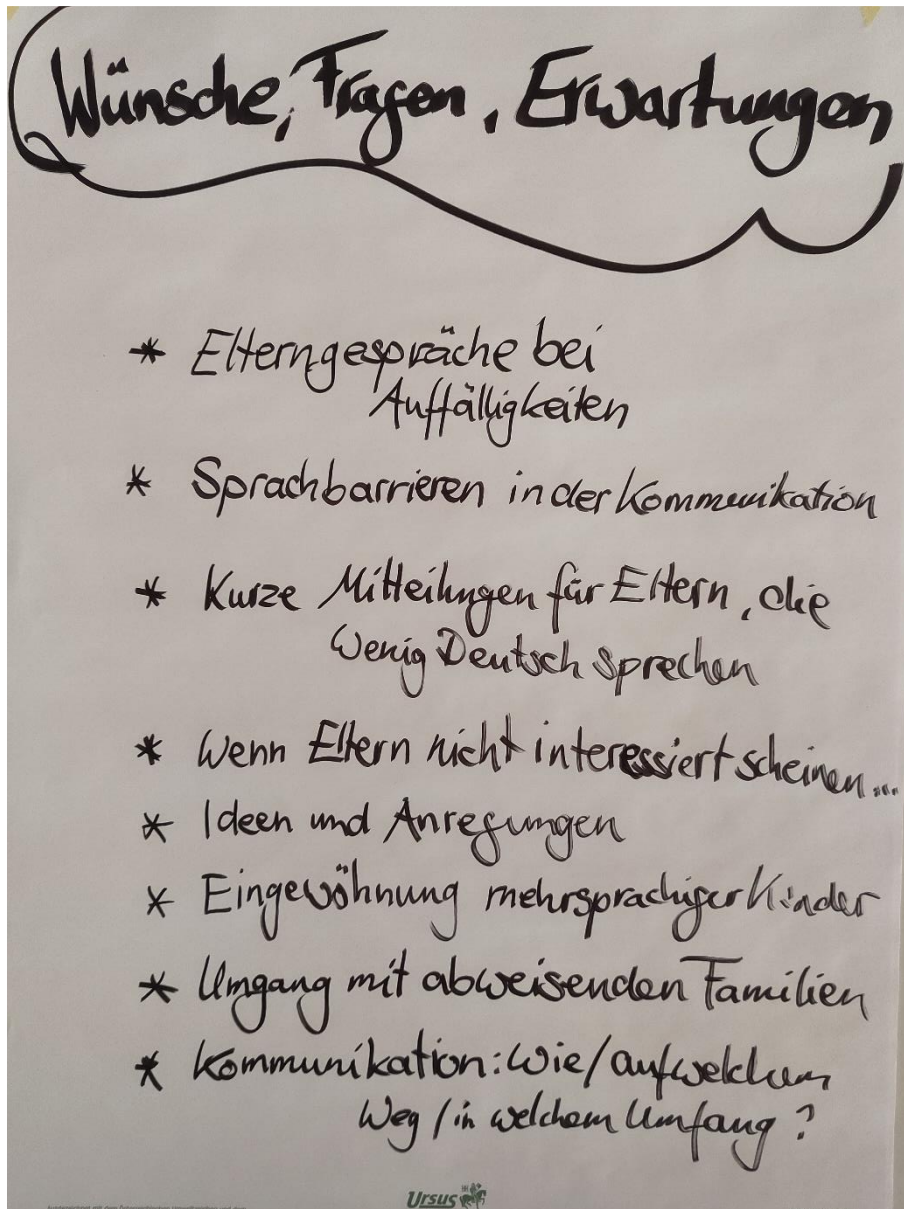 Wünsche, Fragen, Erwartungen
* Elterngespräche bei
Auffälligkeiten
* Sprachbarrieren in der Kommunikation
* Kurze Mitteilungen für Eltern, die
wenig Deutsch sprechen
* Wenn Eltern nicht interessiert scheinen...
* Ideen und Anregungen
* Eingewöhnung mehrsprachiger Kinder
* Umgang mit abweisenden Familien
* Kommunikation: Wie/auf welchem
Weg/in welchem Umfang?
Ursus